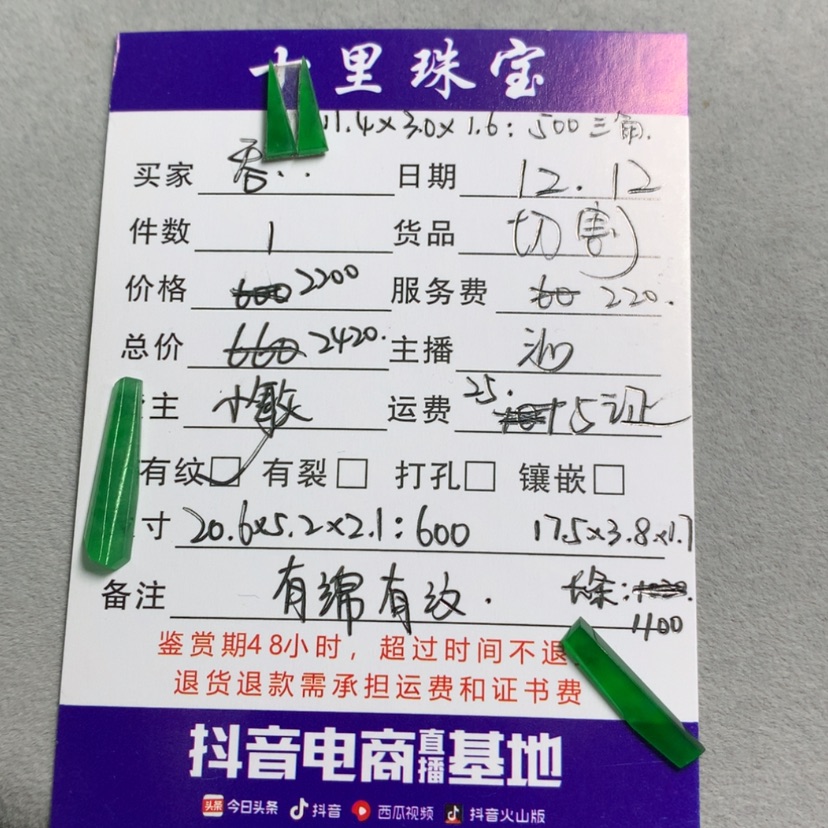 里珠宝
11.4×3.0×1.6:500三角.
买家 日期 12.12
件数 1 货品 切割
价格 600 2200 服务费 60 220.
总价 660 2420. 主播
主 小敏 运费 25. +5证
有纹 有裂 打孔 镶嵌
寸 20.6×5.2×2.1:600 17.5×3.8×1.7
备注 有绵有纹. 长条:
1400
鉴赏期48小时,超过时间不退
退货退款需承担运费和证书费
抖音电商直播基地
头条 今日头条 抖音 西瓜视频 抖音火山版